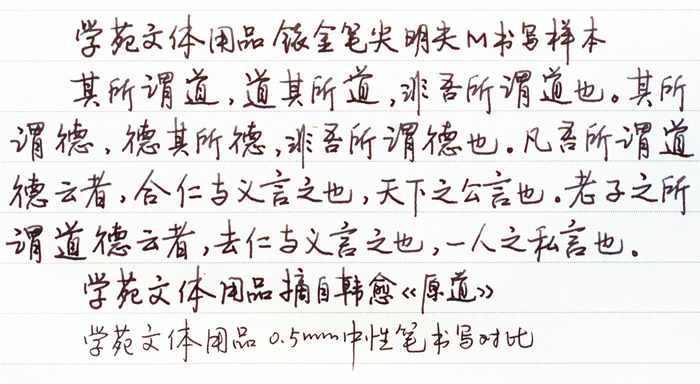 学苑文体用品 铱金笔尖 明尖M书写样本
其所谓道，道其所道，非吾所谓道也。其所
谓德，德其所德，非吾所谓德也。凡吾所谓道
德云者，合仁与义言之也，天下之公言也。老子之所
谓道德云者，去仁与义言之也，一人之私言也。
学苑文体用品摘自韩愈《原道》
学苑文体用品 0.5mm中性笔书写对比